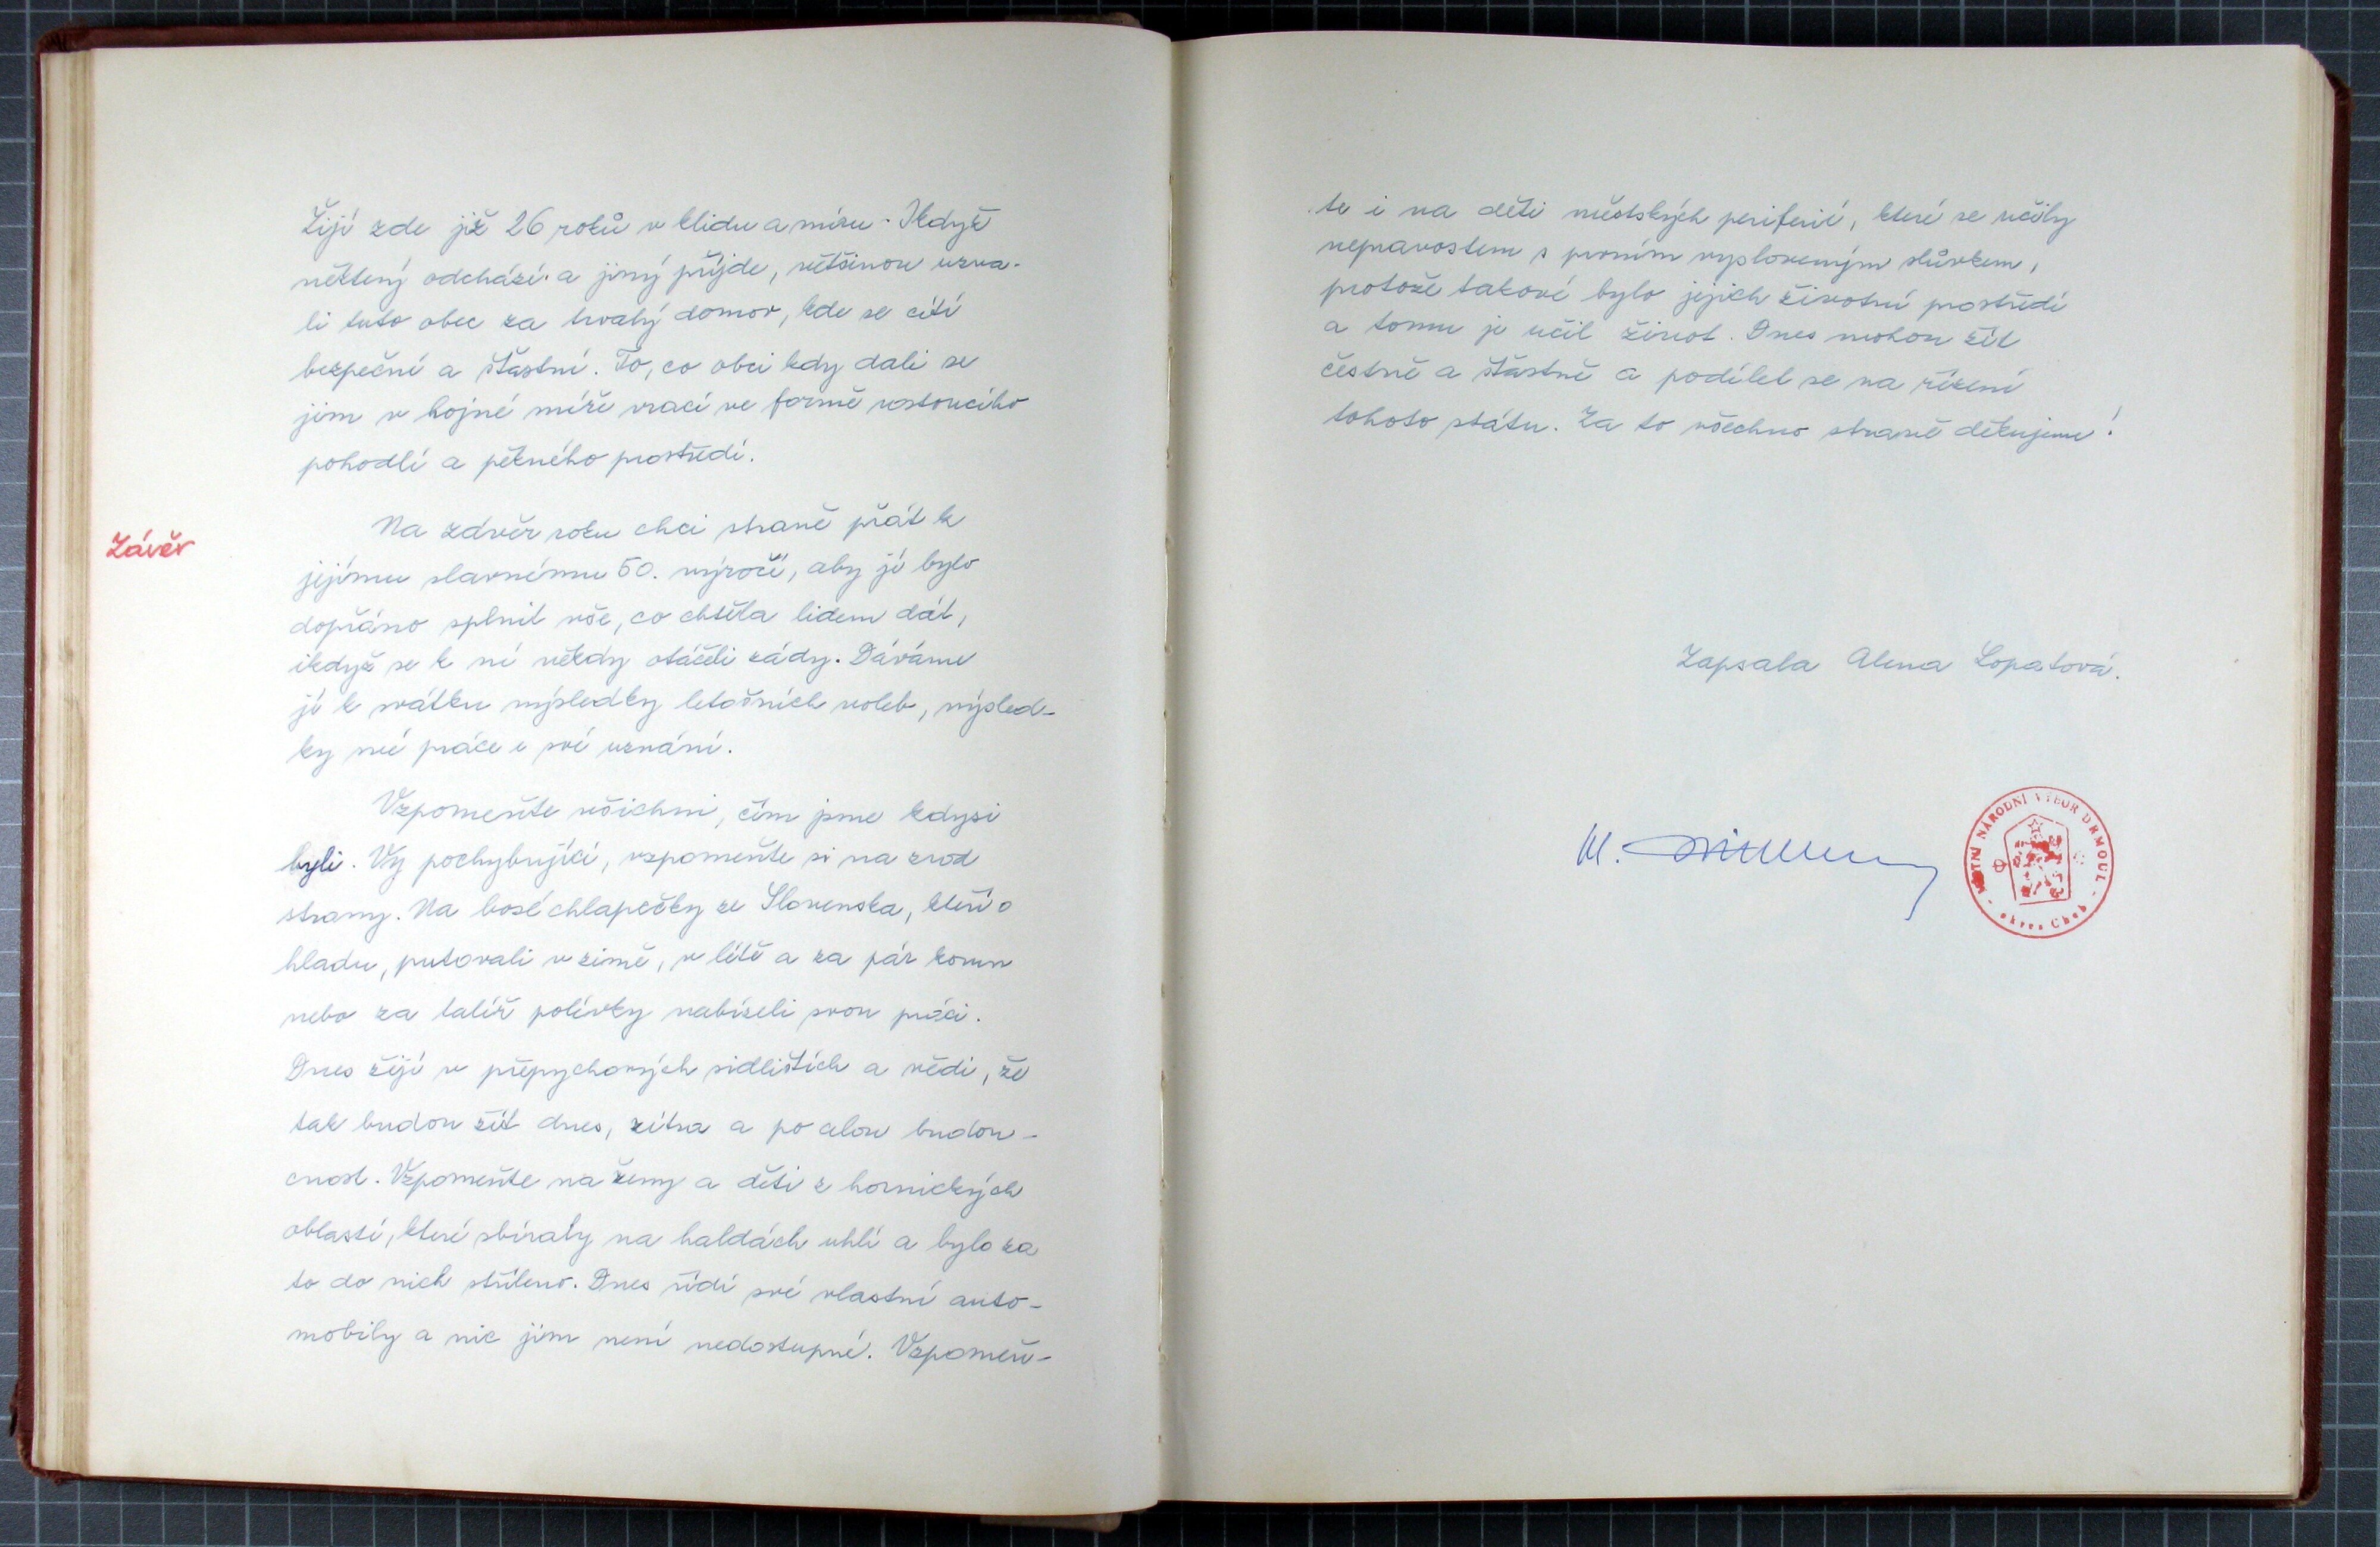 Žijí zde již 26 roků v klidu a míru. Ikdyž
některý odchází a jiný přijde, většinou uzna-
li tuto obec za trvalý domov, kde se cítí
bezpeční a šťastní. To, co obci kdy dali se
jim v hojné míře vrací ve formě rostoucího
pohodlí a pěkného prostředí.
Závěr
Na závěr roku chci straně přát k
jejímu slavnému 50. výročí, aby jí bylo
dopřáno splnit vše, co chtěla lidem dát,
ikdyž se k ní někdy otáčeli zády. Dáváme
jí k svátku výsledky letošních voleb, výsled-
ky své práce i své uznání.
Vzpomeňte všichni, čím jsme kdysi
byli. Vy pochybující, vzpomeňte si na zrod
strany. Na bosé chlapečky ze Slovenska, kteří o
hladu, putovali v zimě, v létě a za pár korun
nebo za talíř polévky nabízeli svou práci.
Dnes žijí v přepychových sídlištích a vědí, že
tak budou žít dnes, zítra a po celou budou-
cnost. Vzpomeňte na ženy a děti z hornických
oblastí, které sbíraly na haldách uhlí a bylo za
to do nich stříleno. Dnes řídí své vlastní auto-
mobily a nic jim není nedostupné. Vzpomeň-
te i na děti městských periferií, které se učily
nepravostem s prvním vysloveným slůvkem,
protože takové bylo jejich životní prostředí
a tomu je učil život. Dnes mohou žít
čestně a šťastně a podílet se na řízení
tohoto státu. Za to všechno straně děkujeme!
Zapsala Alena Lopatová.
M.
MÍSTNÍ NÁRODNÍ VÝBOR DRMOUL
- okres Cheb -